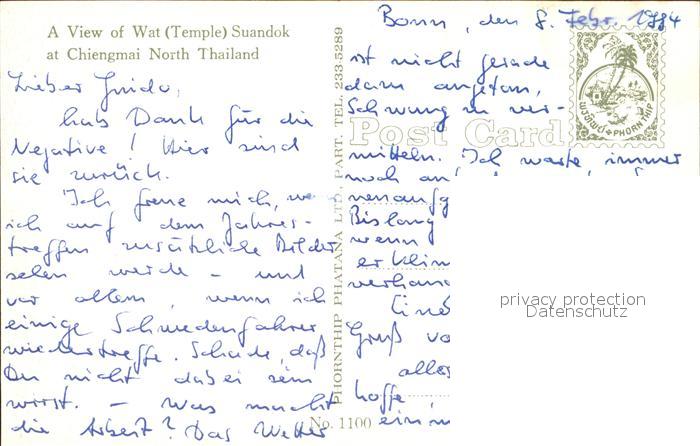 A View of Wat (Temple) Suandok
at Chiengmai North Thailand
Lieber Guido,
hab Dank für die
Negative! Hier sind
sie zurück.
Ich freue mich, we
ich auf dem Jahres-
treffen zusätzliche Bilder
sehen werde - und
vor allem, wenn ich
einige Schwedenfahrer
wiedertreffe. Schade, daß
Du nicht dabei sein
wirst. - Was macht
die Arbeit? Das Wetter
PHORNTHIP PHATANA LTD., PART. TEL. 233-5289
No. 1100
Bonn, den 8. Febr. 1984
ist nicht gerade
dazu angetan,
Schwung zu ver-
Post Card
mitteln. Ich warte immer
noch an
nenaufg
Bislang
wenn
er klin
verhang
Gruß vo
alles
hoffe
ein
PHORN THIP
privacy protection
Datenschutz